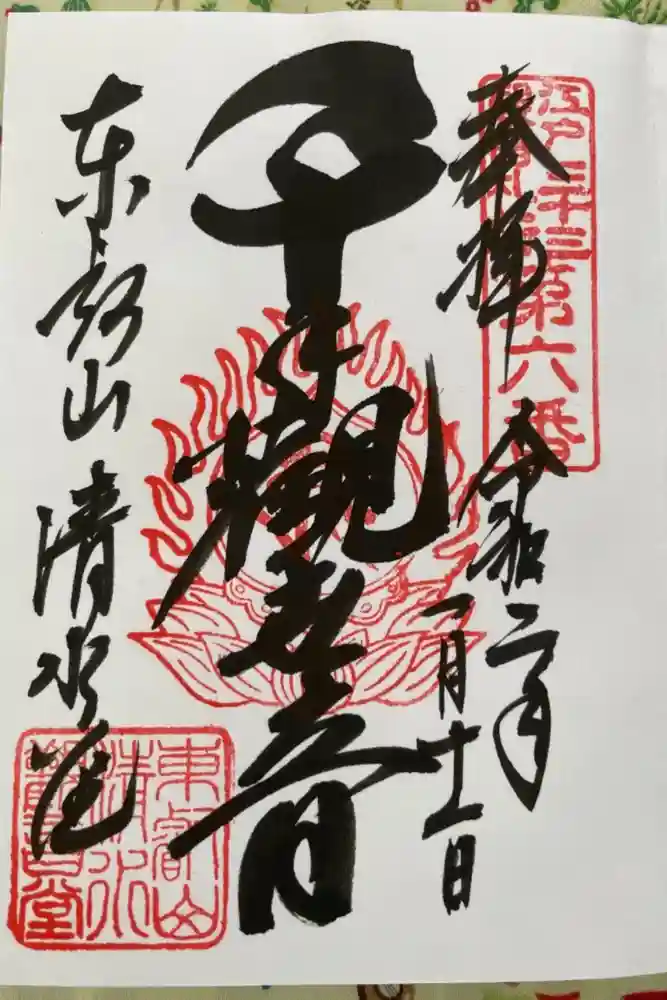 江戸三十三
第六番
奉拝
令和二年
一月十一日
千手観世音
東叡山 清水堂
東叡山
清水
觀音堂